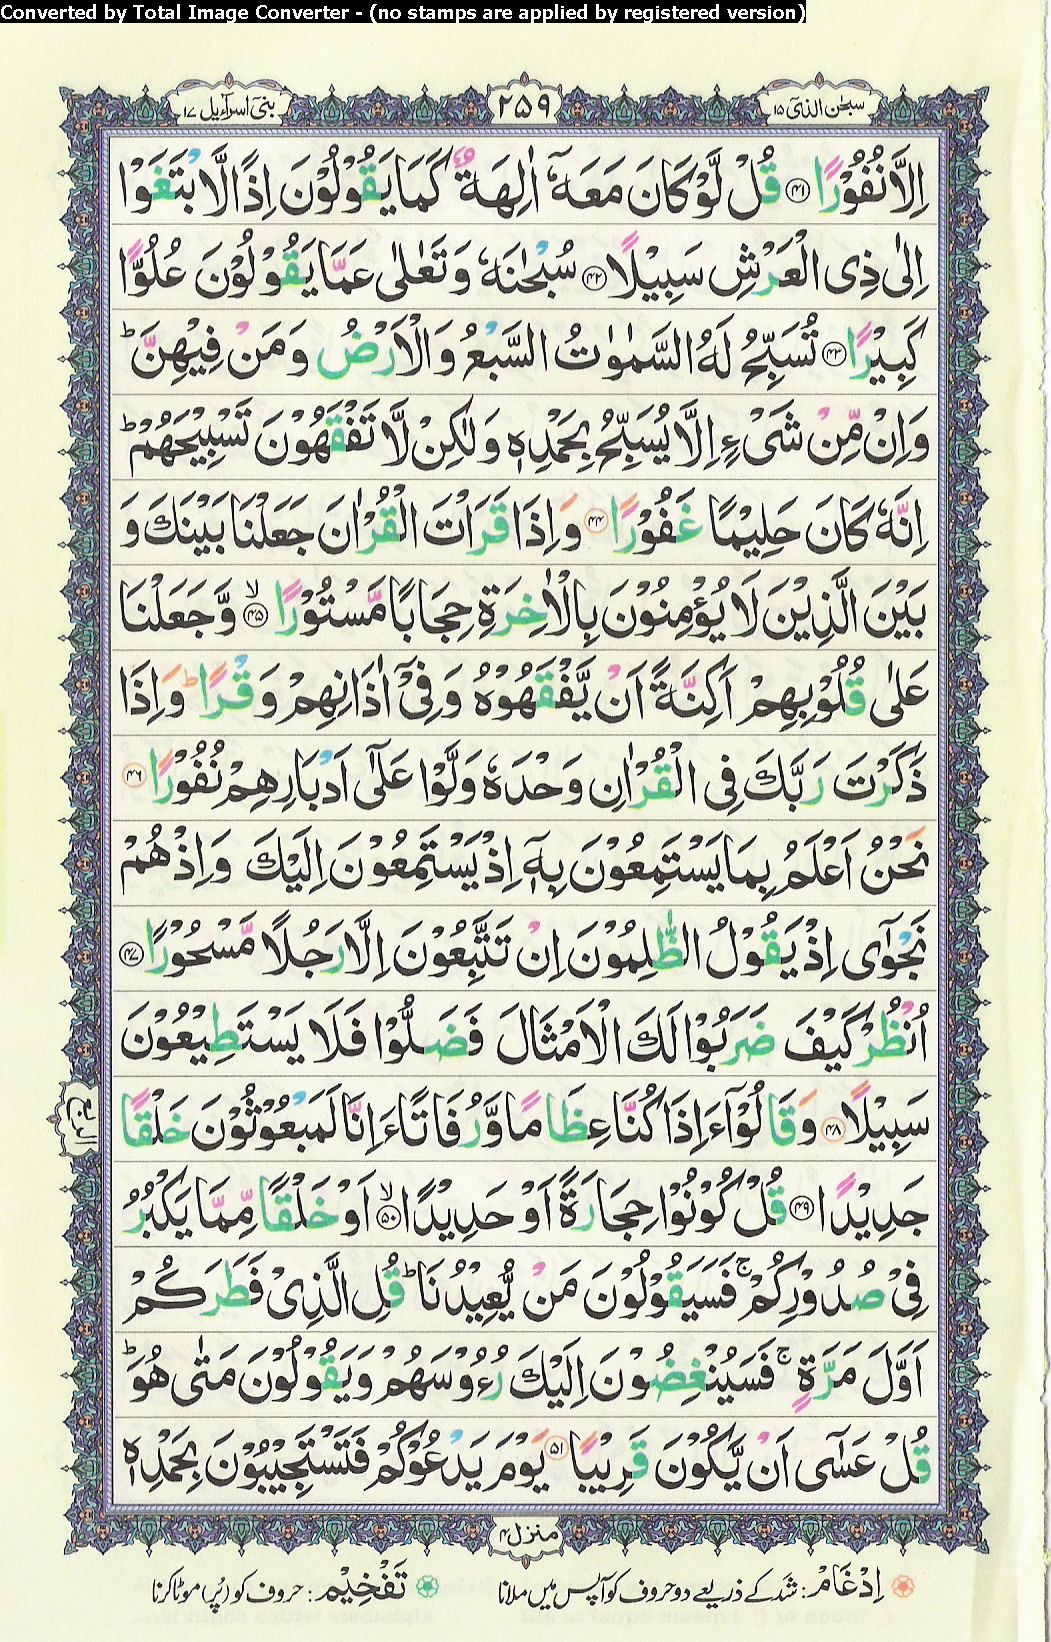 Converted by Total Image Converter - (no stamps are applied by registered version)
سبحٰن الذیٓ ۱۵
۲۵۹
بنیٓ اسرآءیل ۱۷
اِلَّا نُفُوْرًا ﴿۴۱﴾ قُلْ لَّوْ كَانَ مَعَهٗۤ اٰلِهَةٌ كَمَا یَقُوْلُوْنَ اِذًا لَّا بْتَغَوْا
اِلٰی ذِی الْعَرْشِ سَبِیْلًا ﴿۴۲﴾ سُبْحٰنَهٗ وَ تَعٰلٰی عَمَّا یَقُوْلُوْنَ عُلُوًّا
كَبِیْرًا ﴿۴۳﴾ تُسَبِّحُ لَهُ السَّمٰوٰتُ السَّبْعُ وَ الْاَرْضُ وَ مَنْ فِیْهِنَّ ؕ
وَ اِنْ مِّنْ شَیْءٍ اِلَّا یُسَبِّحُ بِحَمْدِهٖ وَ لٰكِنْ لَّا تَفْقَهُوْنَ تَسْبِیْحَهُمْ ؕ
اِنَّهٗ كَانَ حَلِیْمًا غَفُوْرًا ﴿۴۴﴾ وَ اِذَا قَرَاْتَ الْقُرْاٰنَ جَعَلْنَا بَیْنَكَ وَ
بَیْنَ الَّذِیْنَ لَا یُؤْمِنُوْنَ بِالْاٰخِرَةِ حِجَابًا مَّسْتُوْرًا ﴿۴۵﴾ ۙ وَّ جَعَلْنَا
عَلٰی قُلُوْبِهِمْ اَكِنَّةً اَنْ یَّفْقَهُوْهُ وَ فِیْۤ اٰذَانِهِمْ وَقْرًا ؕ وَ اِذَا
ذَكَرْتَ رَبَّكَ فِی الْقُرْاٰنِ وَحْدَهٗ وَلَّوْا عَلٰۤی اَدْبَارِهِمْ نُفُوْرًا ﴿۴۶﴾
نَحْنُ اَعْلَمُ بِمَا یَسْتَمِعُوْنَ بِهٖۤ اِذْ یَسْتَمِعُوْنَ اِلَیْكَ وَ اِذْ هُمْ
نَجْوٰۤی اِذْ یَقُوْلُ الظّٰلِمُوْنَ اِنْ تَتَّبِعُوْنَ اِلَّا رَجُلًا مَّسْحُوْرًا ﴿۴۷﴾
اُنْظُرْ كَیْفَ ضَرَبُوْا لَكَ الْاَمْثَالَ فَضَلُّوْا فَلَا یَسْتَطِیْعُوْنَ
سَبِیْلًا ﴿۴۸﴾ وَ قَالُوْۤا ءَاِذَا كُنَّا عِظَامًا وَّ رُفَاتًا ءَاِنَّا لَمَبْعُوْثُوْنَ خَلْقًا
جَدِیْدًا ﴿۴۹﴾ قُلْ كُوْنُوْا حِجَارَةً اَوْ حَدِیْدًا ﴿۵۰﴾ ۙ اَوْ خَلْقًا مِّمَّا یَكْبُرُ
فِیْ صُدُوْرِكُمْ ۚ فَسَیَقُوْلُوْنَ مَنْ یُّعِیْدُنَا ؕ قُلِ الَّذِیْ فَطَرَكُمْ
اَوَّلَ مَرَّةٍ ۚ فَسَیُنْغِضُوْنَ اِلَیْكَ رُءُوْسَهُمْ وَ یَقُوْلُوْنَ مَتٰی هُوَ ؕ
قُلْ عَسٰۤی اَنْ یَّكُوْنَ قَرِیْبًا ﴿۵۱﴾ یَوْمَ یَدْعُوْكُمْ فَتَسْتَجِیْبُوْنَ بِحَمْدِهٖ
الربع
منزل ۴
اِدْغَام: شد کے ذریعے دو حروف کو آپس میں ملانا
تَفْخِیْم: حروف کو (پُر) موٹا کرنا